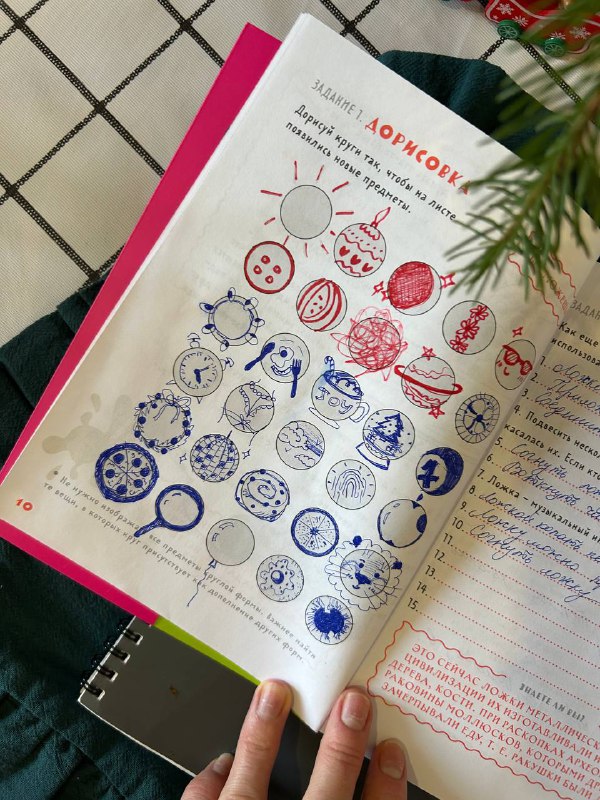 ЗАДАНИЕ 1. ДОРИСОВКА
Дорисуй круги так, чтобы на листе
появились новые предметы.
JOY
4
* Не нужно изображать все предметы круглой формы. Важнее найти
те вещи, в которых круг присутствует как дополнение других форм.
10
ЗАДАН
Как еще
использова
1. Ложка
2.
3.
4. Подвесить неско
касалась их. Если кто
5. Согнуть
6.
7. Ложка – музыкальный ин
8. Ложкой копать
9. Ложку можно
10. Согнуть ложку
11.
12.
13.
14.
15.
ЗНАЕТЕ ЛИ ВЫ?
ЭТО СЕЙЧАС ЛОЖКИ МЕТАЛЛИЧЕСК
ЦИВИЛИЗАЦИИ ИХ ИЗГОТАВЛИВАЛИ И
ДЕРЕВА, КОСТИ. ПРИ РАСКОПКАХ АРХЕО
РАКОВИНЫ МОЛЛЮСКОВ, КОТОРЫМИ ДР
ЗАЧЕРПЫВАЛИ ЕДУ, Т. Е. РАКУШКИ БЫЛИ